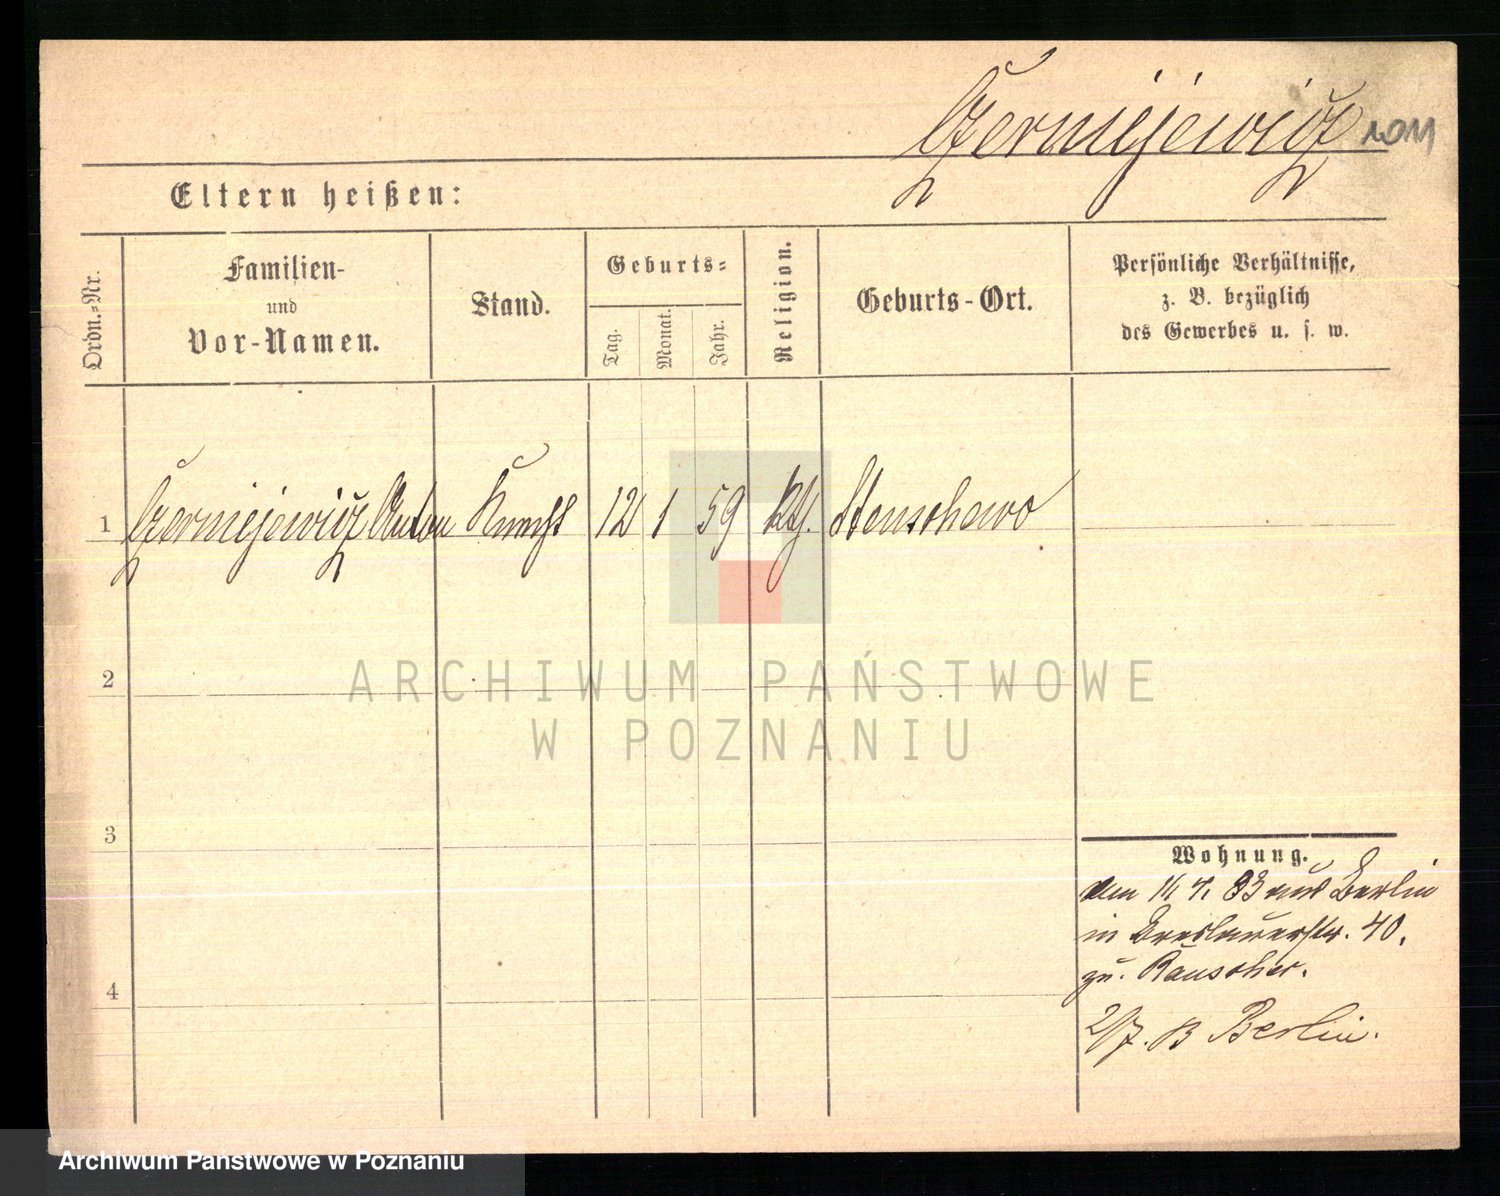 Czerniejewicz 1011
Eltern heißen:
Ordn.-Nr.
Familien-
und
Vor-Namen.
Stand.
Geburts-
Tag.
Monat.
Jahr.
Religion.
Geburts-Ort.
Persönliche Verhältnisse,
z. B. bezüglich
des Gewerbes u. s. w.
1 Czerniejewicz Anton Knecht 12 1 59 kth. Stenschewo
2
3
4
Wohnung.
den 16 4. 83 aus Berlin
in Breslauerstr. 40.
zu. Rauscher.
2/7. 83 Berlin.
ARCHIWUM PAŃSTWOWE
W POZNANIU
Archiwum Państwowe w Poznaniu